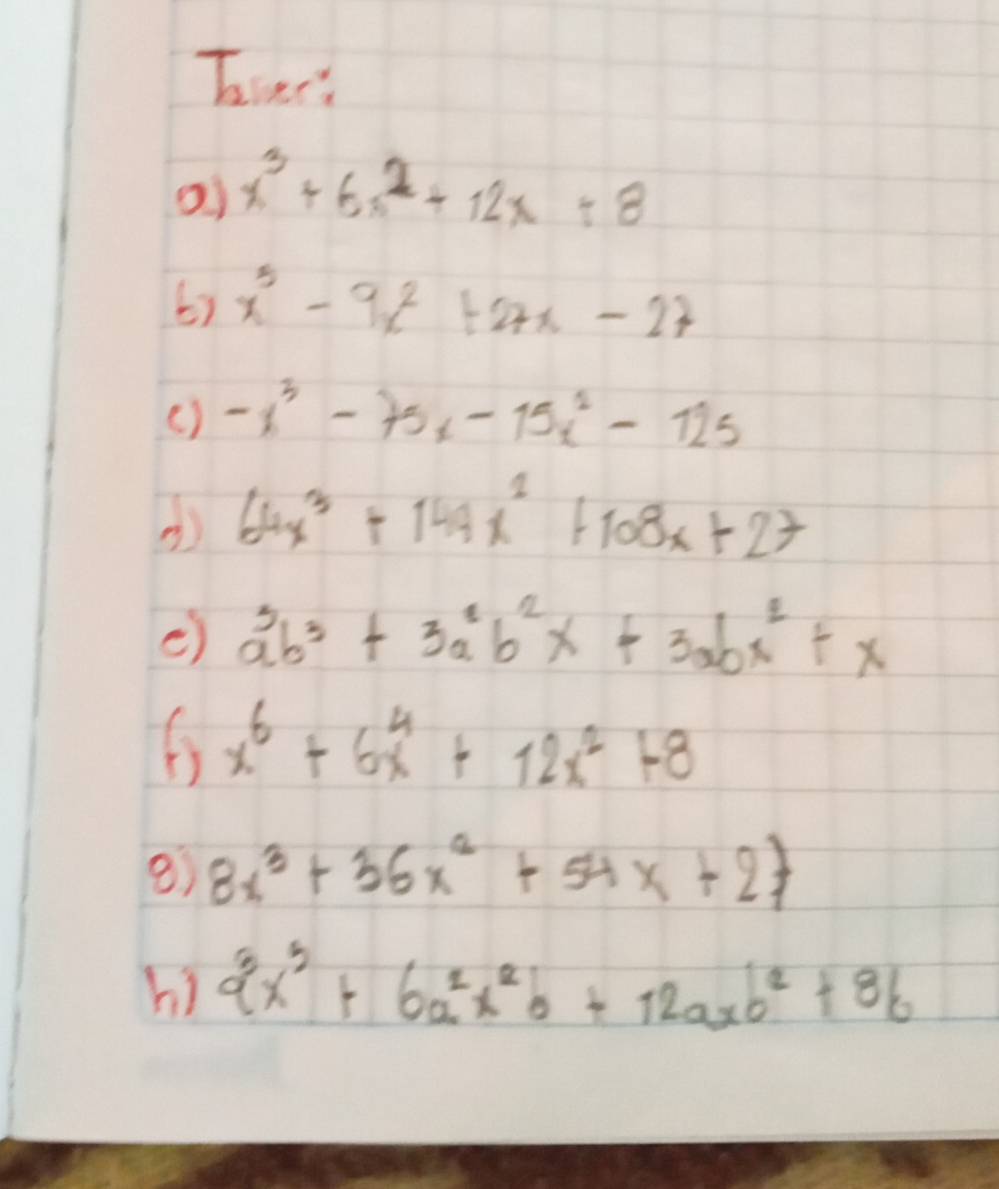 Taller:
a) x³ + 6x² + 12x + 8
b) x³ - 9x² + 27x - 27
c) -x³ - 75x - 15x² - 125
d) 64x³ + 144x² + 108x + 27
e) a³b³ + 3a²b²x + 3abx² + x
f) x⁶ + 6x⁴ + 12x² + 8
g) 8x³ + 36x² + 54x + 27
h) a³x³ + 6a²x²b + 12axb² + 8b